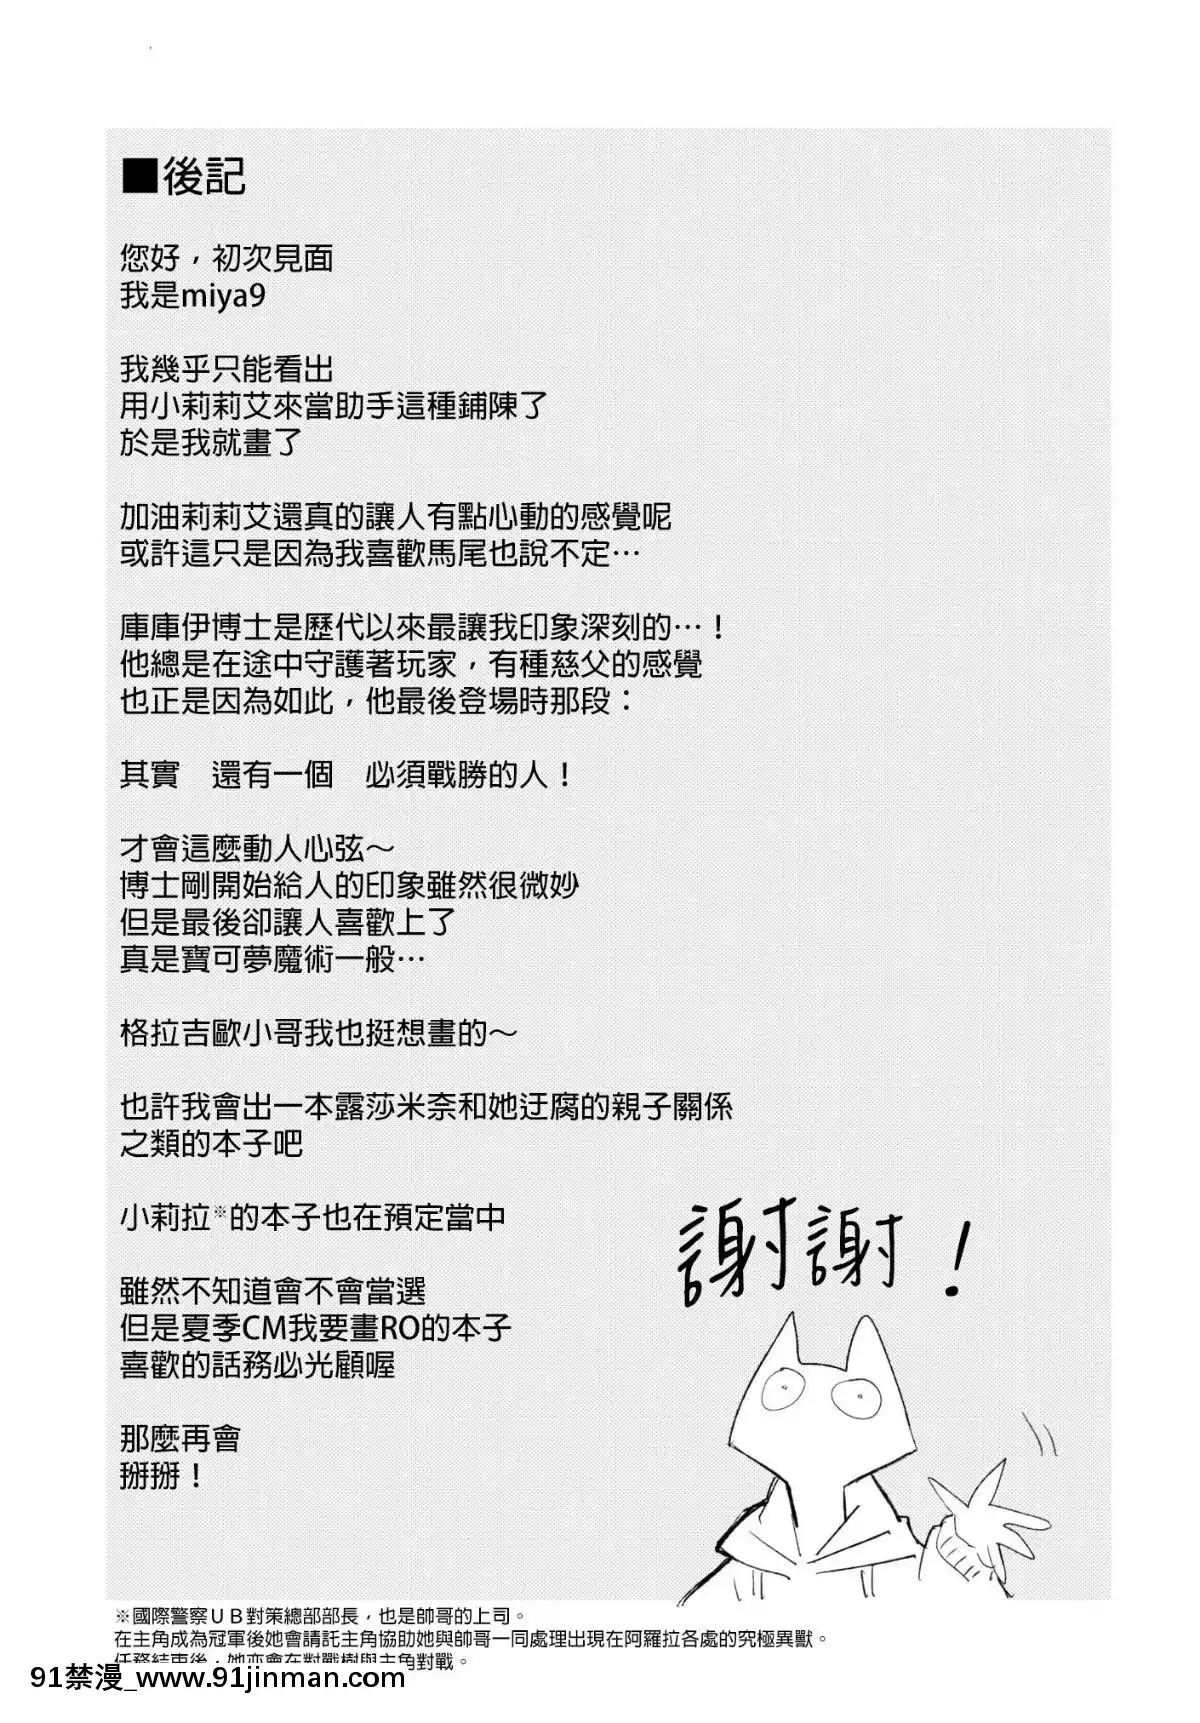 ■後記
您好，初次見面
我是miya9
我幾乎只能看出
用小莉莉艾來當助手這種鋪陳了
於是我就畫了
加油莉莉艾還真的讓人有點心動的感覺呢
或許這只是因為我喜歡馬尾也說不定…
庫庫伊博士是歷代以來最讓我印象深刻的…！
他總是在途中守護著玩家，有種慈父的感覺
也正是因為如此，他最後登場時那段：
其實　還有一個　必須戰勝的人！
才會這麼動人心弦～
博士剛開始給人的印象雖然很微妙
但是最後卻讓人喜歡上了
真是寶可夢魔術一般…
格拉吉歐小哥我也挺想畫的～
也許我會出一本露莎米奈和她迂腐的親子關係
之類的本子吧
小莉拉※的本子也在預定當中
雖然不知道會不會當選
但是夏季CM我要畫RO的本子
喜歡的話務必光顧喔
那麼再會
掰掰！
謝謝！
※國際警察ＵＢ對策總部部長，也是帥哥的上司。
在主角成為冠軍後她會請託主角協助她與帥哥一同處理出現在阿羅拉各處的究極異獸。
任務結束後，她亦會在對戰樹與主角對戰。
91禁漫_www.91jinman.com